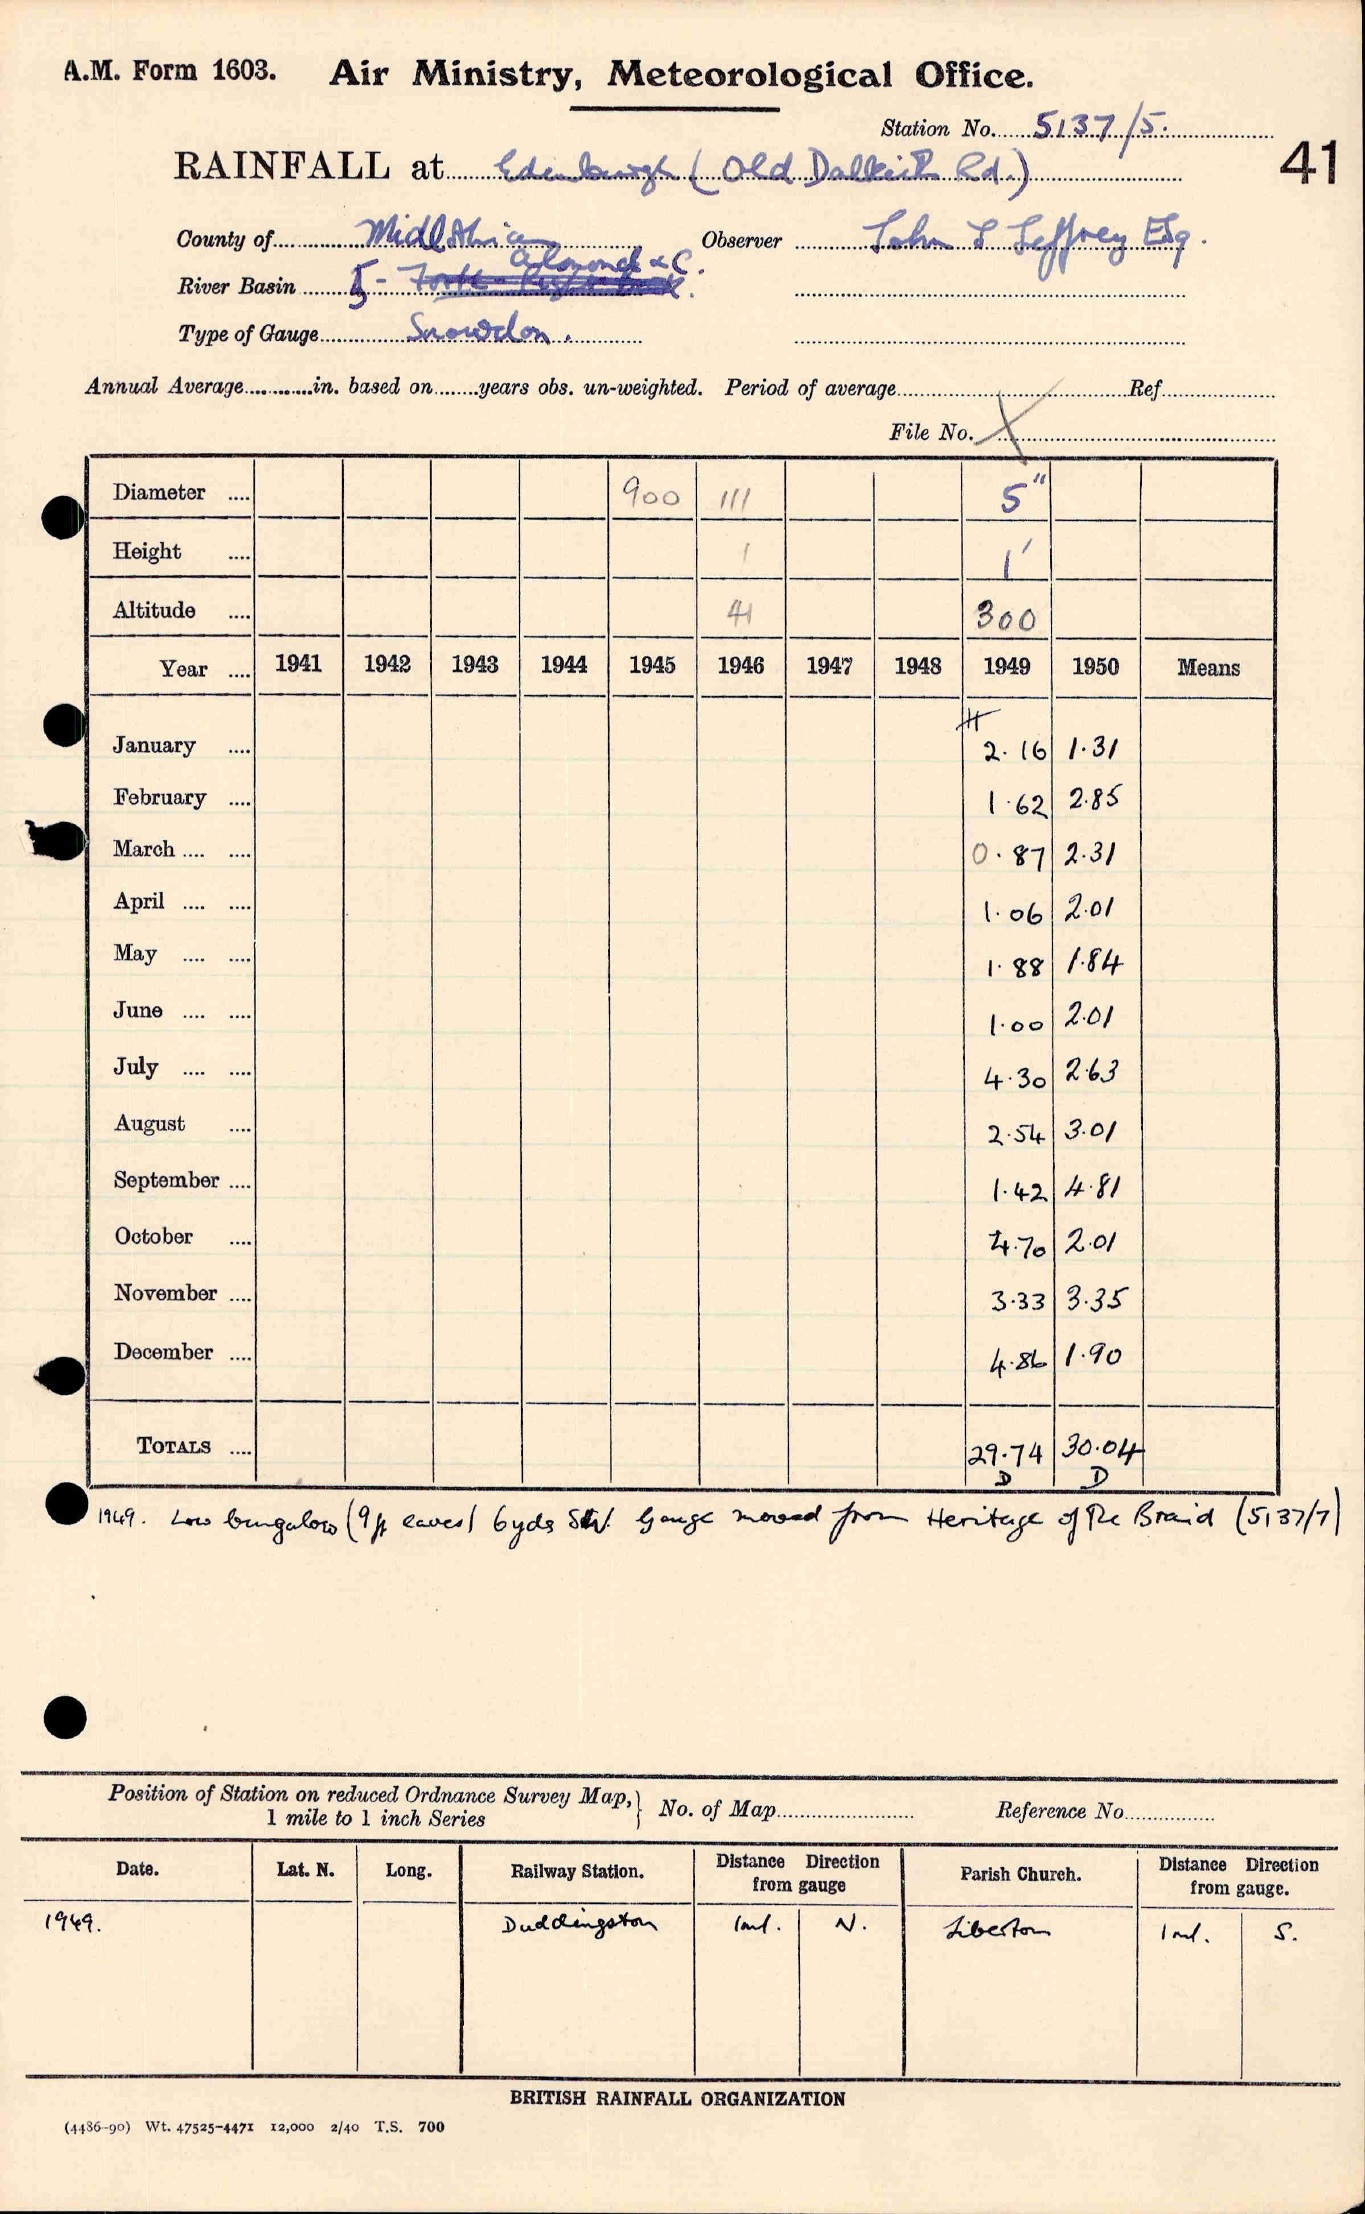 A.M. Form 1603. Air Ministry, Meteorological Office.
Station No. 5137/5.
41
RAINFALL at Edinburgh (Old Dalkeith Rd.)
County of Midlothian Observer John S Jeffrey Esq.
Almond &c.
River Basin 5 - Forth
Type of Gauge Snowdon.
Annual Average in. based on years obs. un-weighted. Period of average Ref
File No.
Diameter .... 900 111 5"
Height .... 1 1'
Altitude .... 41 300
Year .... 1941 1942 1943 1944 1945 1946 1947 1948 1949 1950 Means
January .... 2.16 1.31
February .... 1.62 2.85
March .... .... 0.87 2.31
April .... .... 1.06 2.01
May .... .... 1.88 1.84
June .... .... 1.00 2.01
July .... .... 4.30 2.63
August .... 2.54 3.01
September .... 1.42 4.81
October .... 4.70 2.01
November .... 3.33 3.35
December .... 4.86 1.90
TOTALS .... 29.74 30.04
D D
1949. Low bungalow (9ft eaves) 6yds SW. Gauge moved from Heritage of The Braid (5137/7)
Position of Station on reduced Ordnance Survey Map, } No. of Map Reference No.
1 mile to 1 inch Series
Date. Lat. N. Long. Railway Station. Distance Direction from gauge Parish Church. Distance Direction from gauge.
1949. Duddingston 1ml. N. Liberton 1ml. S.
BRITISH RAINFALL ORGANIZATION
(4486-90) Wt. 47525-4471 12,000 2/40 T.S. 700